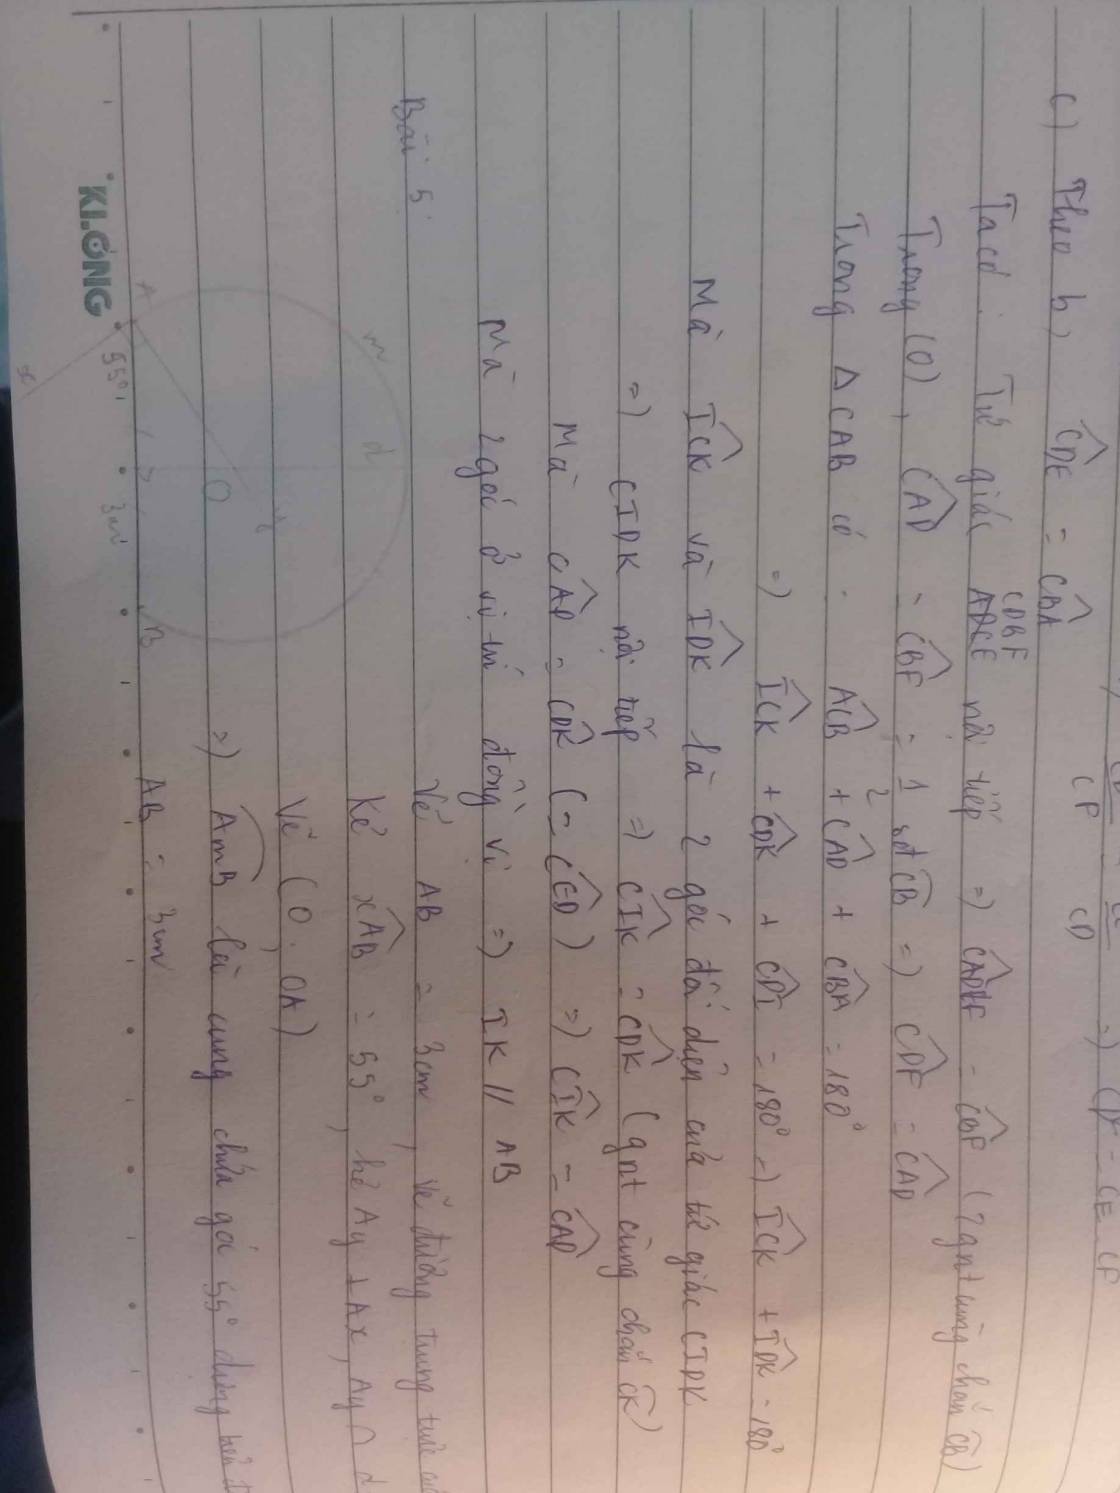 CD CP
CP CD => CD² = CE.CF
c) Theo b) CDE = CBA
Ta có: Tứ giác CDBF ADCE nội tiếp => CDF = CBF (2 gnt cùng chắn CB)
Trong (O), CAD = CBF = 1/2 sđ CB => CDF = CAD
Trong Δ CAB có: ACB + CAD + CBA = 180°
=> ICK + CDK + CDI = 180° => ICK + IDK = 180°
Mà ICK và IDK là 2 góc đối diện của tứ giác CIDK
=> CIDK nội tiếp => CIK = CDK (gnt cùng chắn CK)
Mà CAD = CDK (= CED) => CIK = CAD
Mà 2 góc ở vị trí đồng vị => IK // AB
Bài 5: Vẽ AB = 3cm, vẽ đường trung trực
Kẻ xAB = 55°, kẻ Ay ⊥ Ax, Ay ∩ d
Vẽ (O, OA)
=> AmB là cung chứa góc 55° dựng trên
AB = 3cm
m
d
O
y
A
55°
3cm
B
x
KLONG